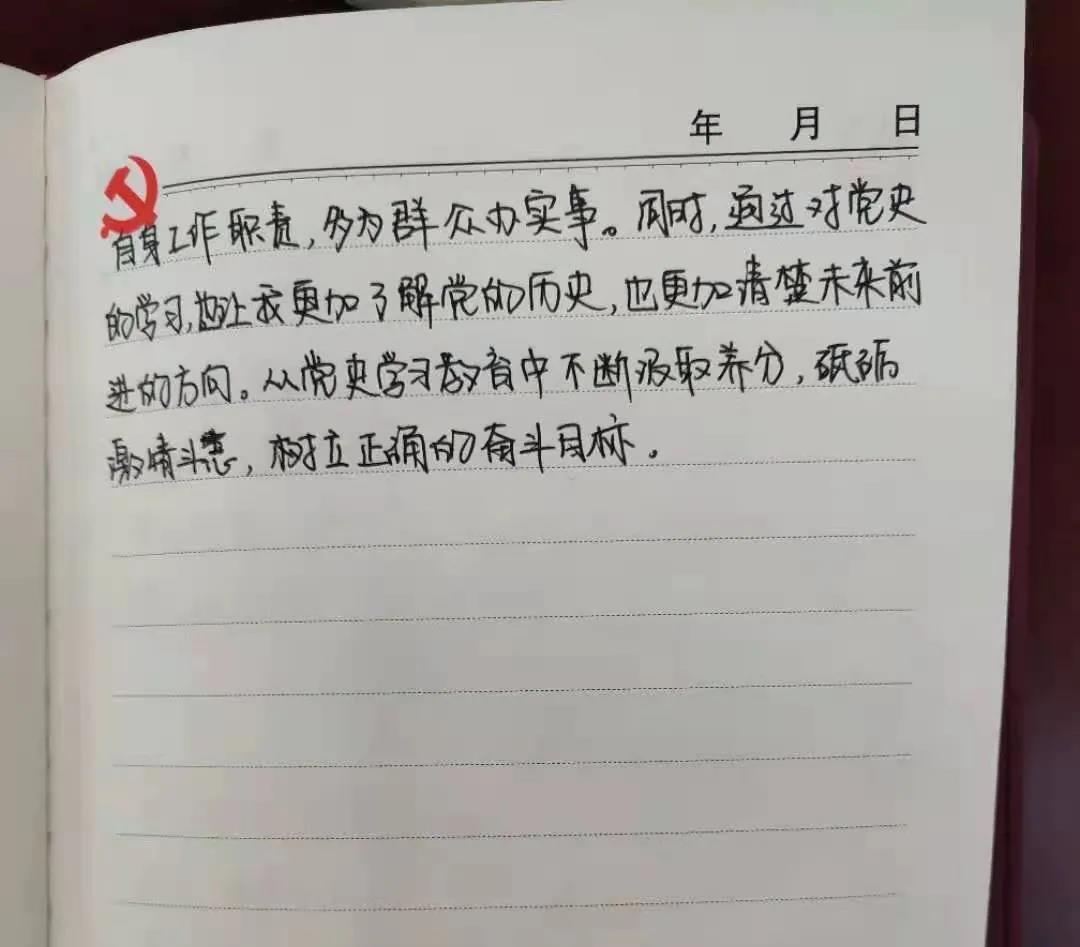 年 月 日
自身工作职责，多为群众办实事。同时，通过对党史
的学习，也让我更加了解党的历史，也更加清楚未来前
进的方向。从党史学习教育中不断汲取养分，砥砺
激情斗志，树立正确的奋斗目标。